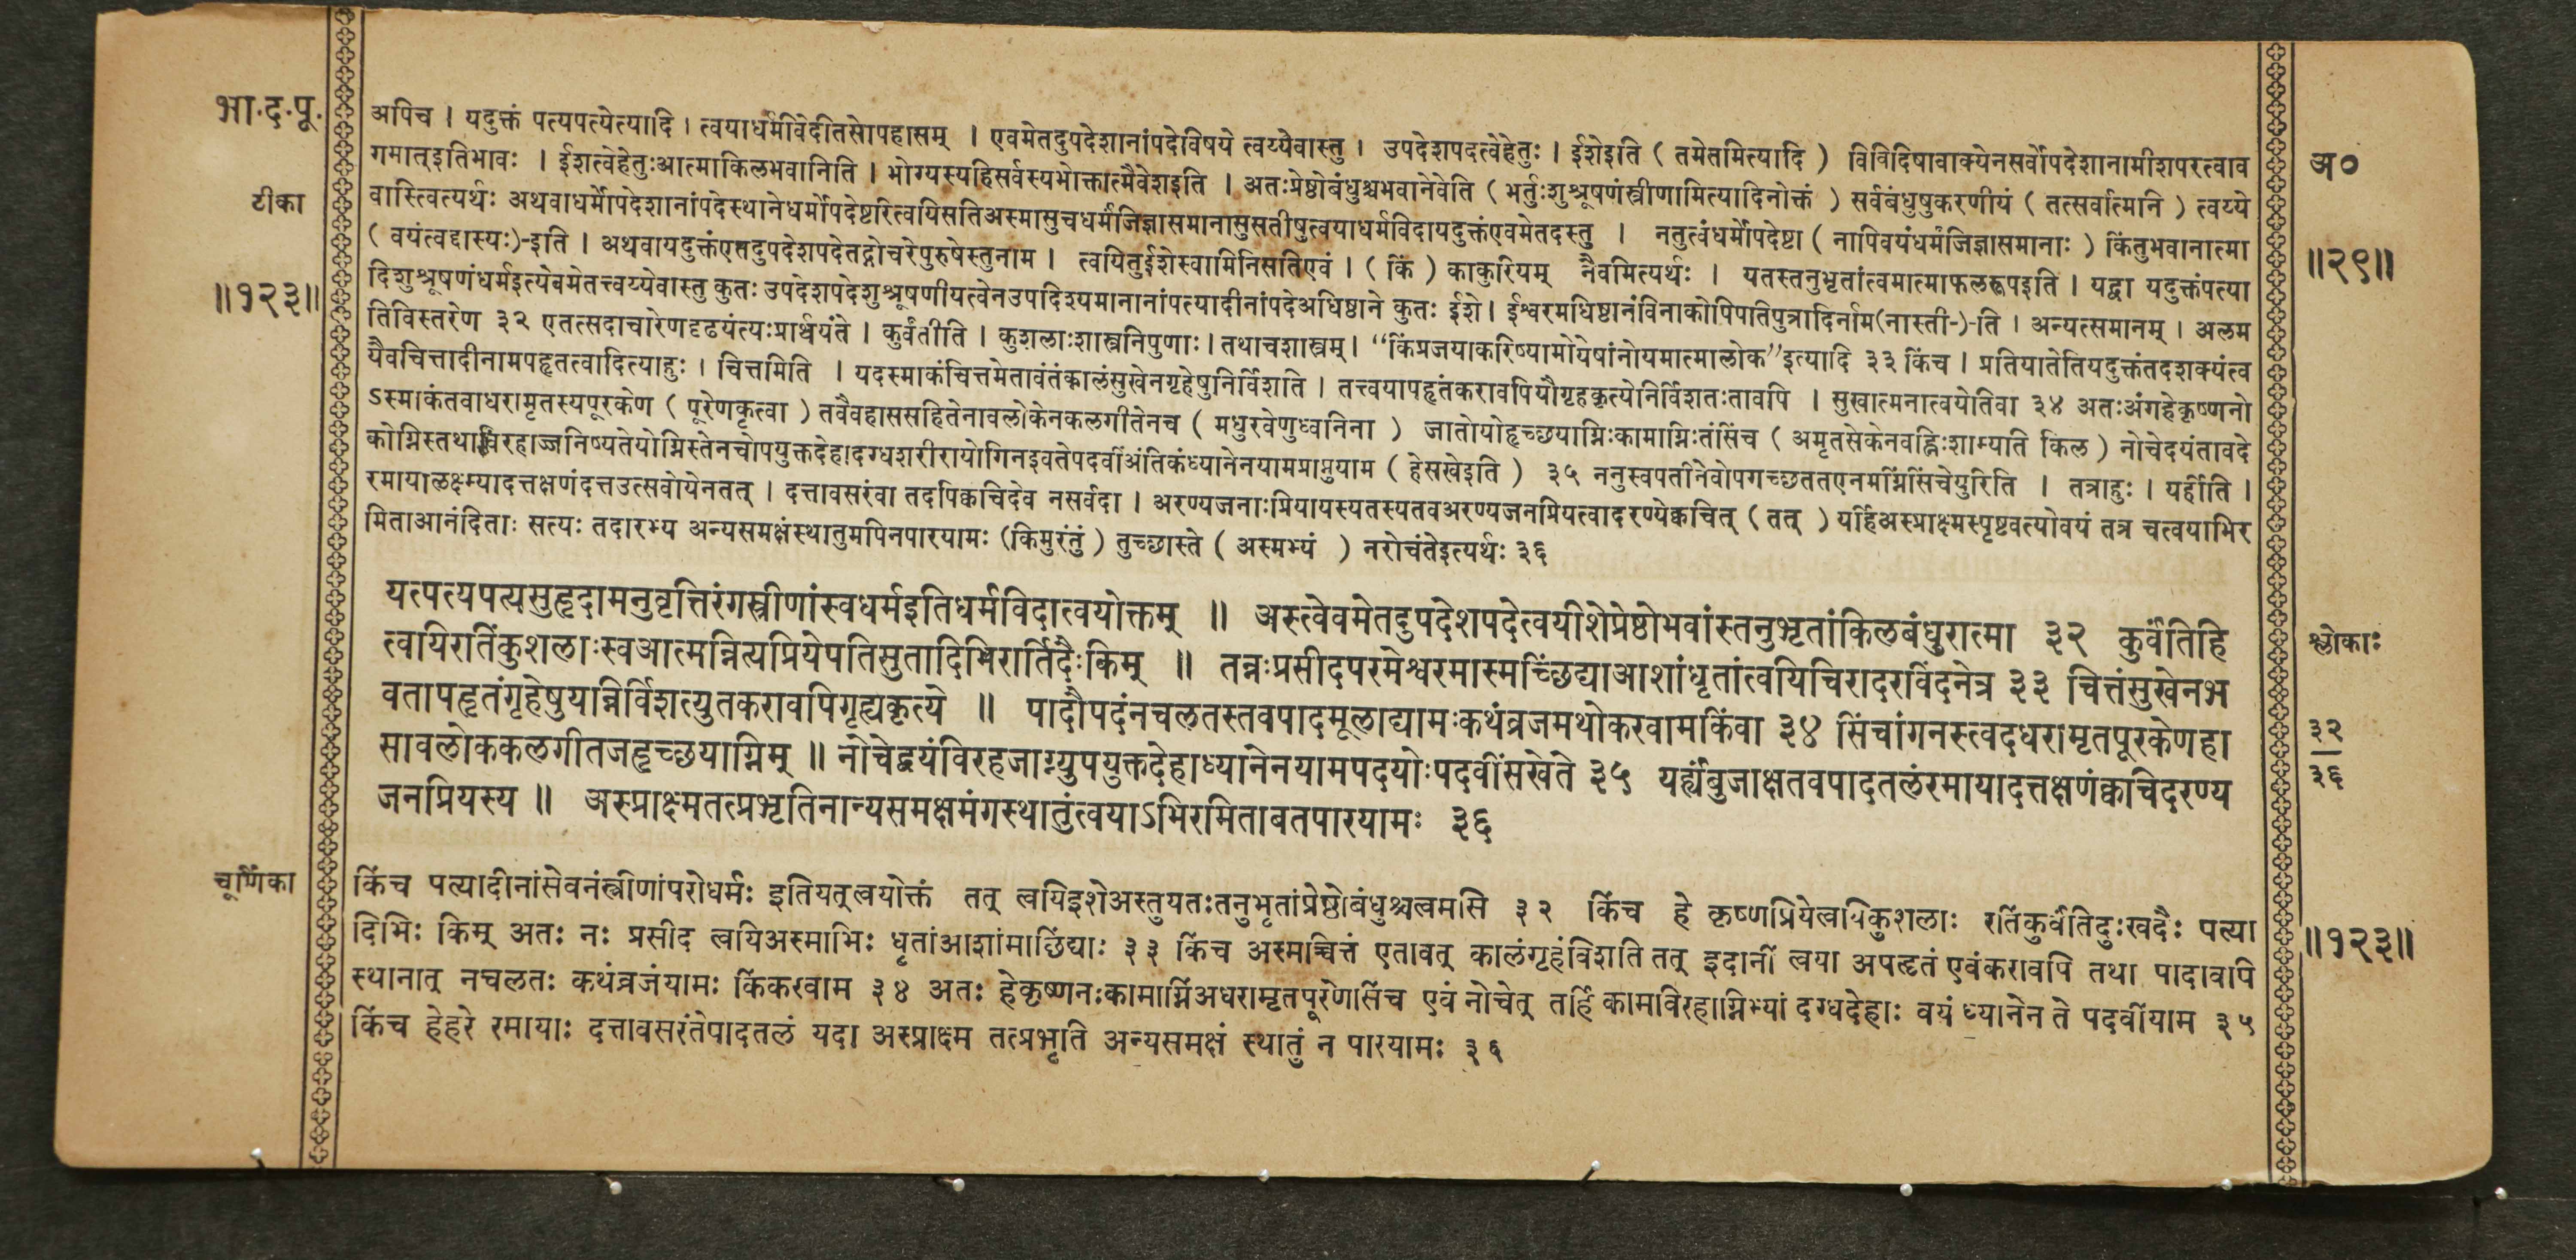 भा.द.पू.
अ०
टीका
॥२९॥
॥१२३॥
अपिच । यदुक्तं पत्यपत्येत्यादि । त्वयाधर्मविदेतिसोपहासम् । एवमेतदुपदेशानांपदेविषये त्वय्येवास्तु । उपदेशपदत्वेहेतुः । ईशेइति ( तमेतमित्यादि ) विविदिषावाक्येनसर्वोपदेशानामीशपरत्वाव
गमात्इतिभावः । ईशत्वेहेतुःआत्माकिलभवानिति । भोग्यस्यहिसर्वस्यभोक्तात्मैवेशइति । अतःप्रेष्ठोबंधुश्चभवानेवेति ( भर्तुःशुश्रूषणंस्त्रीणामित्यादिनोक्तं ) सर्वबंधुषुकरणीयं ( तत्सर्वात्मनि ) त्वय्ये
वास्त्वित्यर्थः अथवाधर्मोपदेशानांपदेस्थानेधर्मोपदेष्टरित्वयिसतिअस्मासुचधर्मंजिज्ञासमानासुसतीषुत्वयाधर्मविदायदुक्तंएवमेतदस्तु । नतुत्वंधर्मोपदेष्टा ( नापिवयंधर्मंजिज्ञासमानाः ) किंतुभवानात्मा
( वयंत्वद्दास्यः)-इति । अथवायदुक्तंएतदुपदेशपदेतद्गोचरेपुरुषेस्तुनाम । त्वयितुईशेस्वामिनिसतिएवं । ( किं ) काकुरियम् नैवमित्यर्थः । यतस्तनुभृतांत्वमात्माफलरूपइति । यद्वा यदुक्तंपत्या
दिशुश्रूषणंधर्मइत्येवमेतत्त्वय्येवास्तु कुतः उपदेशपदेशुश्रूषणीयत्वेनउपदिश्यमानानांपत्यादीनांपदेअधिष्ठाने कुतः ईशे। ईश्वरमधिष्ठानंविनाकोपिपतिपुत्रादिर्नाम(नास्ती-)-ति । अन्यत्समानम् । अलम
तिविस्तरेण ३२ एतत्सदाचारेणदृढयंत्यःप्रार्थयंते । कुर्वंतीति । कुशलाःशास्त्रनिपुणाः। तथाचशास्त्रम्। “किंप्रजयाकरिष्यामोयेषांनोयमात्मालोक”इत्यादि ३३ किंच । प्रतियातेतियदुक्तंतदशक्यंत्व
यैवचित्तादीनामपहृतत्वादित्याहुः । चित्तमिति । यदस्माकंचित्तमेतावंतंकालंसुखेनगृहेषुनिर्विशाते । तत्त्वयापहृतंकरावपियौगृहकृत्येनिर्विशतःतावपि । सुखात्मनात्वयेतिवा ३४ अतःअंगहेकृष्णनो
ऽस्माकंतवाधरामृतस्यपूरकेण ( पूरेणकृत्वा ) तवैवहाससहितेनावलोकेनकलगीतेनच ( मधुरवेणुध्वनिना ) जातोयोहृच्छयाग्निःकामाग्निःतंसिंच ( अमृतसेकेनवह्निःशाम्याति किल ) नोचेदयंतावदे
कोग्निस्तथाविरहाज्जनिष्यतेयोग्निस्तेनचोपयुक्तदेहादग्धशरीरायोगिनइवतेपदवींअंतिकंध्यानेनयामप्राप्नुयाम ( हेसखेइति ) ३५ ननुस्वपतीनेवोपगच्छततएनमग्निंसिंचेयुरिति । तत्राहुः । यर्हीति ।
रमायालक्ष्म्यादत्तक्षणंदत्तउत्सवोयेनतत् । दत्तावसरंवा तदपिक्वचिदेव नसर्वदा । अरण्यजनाःप्रियायस्यतस्यतवअरण्यजनप्रियत्वादरण्येक्वचित् ( तत् ) यर्हिअस्प्राक्ष्मस्पृष्टवत्योवयं तत्र चत्वयाभिर
मिताआनंदिताः सत्यः तदारभ्य अन्यसमक्षंस्थातुमपिनपारयामः (किमुरंतुं ) तुच्छास्ते ( अस्मभ्यं ) नरोचंतेइत्यर्थः ३६
यत्पत्यपत्यसुहृदामनुवृत्तिरंगस्त्रीणांस्वधर्मइतिधर्मविदात्वयोक्तम् ॥ अस्त्वेवमेतदुपदेशपदेत्वयीशेप्रेष्ठोभवांस्तनुभृतांकिलबंधुरात्मा ३२ कुर्वंतिहि
त्वयिरतिंकुशलाःस्वआत्मन्नित्यप्रियेपतिसुतादिभिरार्तिदैःकिम् ॥ तन्नःप्रसीदपरमेश्वरमास्मच्छिंद्याआशांधृतांत्वयिचिरादरविंदनेत्र ३३ चित्तंसुखेनभ
वतापहृतंगृहेषुयान्निर्विशत्युतकरावपिगृह्यकृत्ये ॥ पादौपदंनचलतस्तवपादमूलाद्यामःकथंव्रजमथोकरवामकिंवा ३४ सिंचांगनस्त्वदधरामृतपूरकेणहा
सावलोककलगीतजहृच्छयाग्निम् ॥ नोचेद्वयंविरहजाग्न्युपयुक्तदेहाध्यानेनयामपदयोःपदवींसखेते ३५ यर्ह्यंबुजाक्षतवपादतलंरमायादत्तक्षणंक्वचिदरण्य
जनप्रियस्य ॥ अस्प्राक्ष्मतत्प्रभृतिनान्यसमक्षमंगस्थातुंत्वयाऽभिरमिताबतपारयामः ३६
श्लोकाः
३२
३६
चूर्णिका
किंच पत्यादीनांसेवनंस्त्रीणांपरोधर्मः इतियत्त्वयोक्तं तत् त्वयिइशेअस्तुयतःतनुभृतांप्रेष्ठोबंधुश्चत्वमसि ३२ किंच हे कृष्णप्रियेत्वयिकुशलाः रतिंकुर्वंतिदुःखदैः पत्या
दिभिः किम् अतः नः प्रसीद त्वयिअस्माभिः धृतांआशांमाछिंद्याः ३३ किंच अस्मच्चित्तं एतावत् कालंगृहंविशति तत् इदानीं त्वया अपहृतं एवंकरावपि तथा पादावपि
स्थानात् नचलतः कथंव्रजंयामः किंकरवाम ३४ अतः हेकृष्णनःकामाग्निंअधरामृतपूरेणसिंच एवं नोचेत् तर्हि कामाविरहाग्निभ्यां दग्धदेहाः वयं ध्यानेन ते पदवींयाम ३५
किंच हेहरे रमायाः दत्तावसरंतेपादतलं यदा अस्प्राक्ष्म तत्प्रभृति अन्यसमक्षं स्थातुं न पारयामः ३६
॥१२३॥